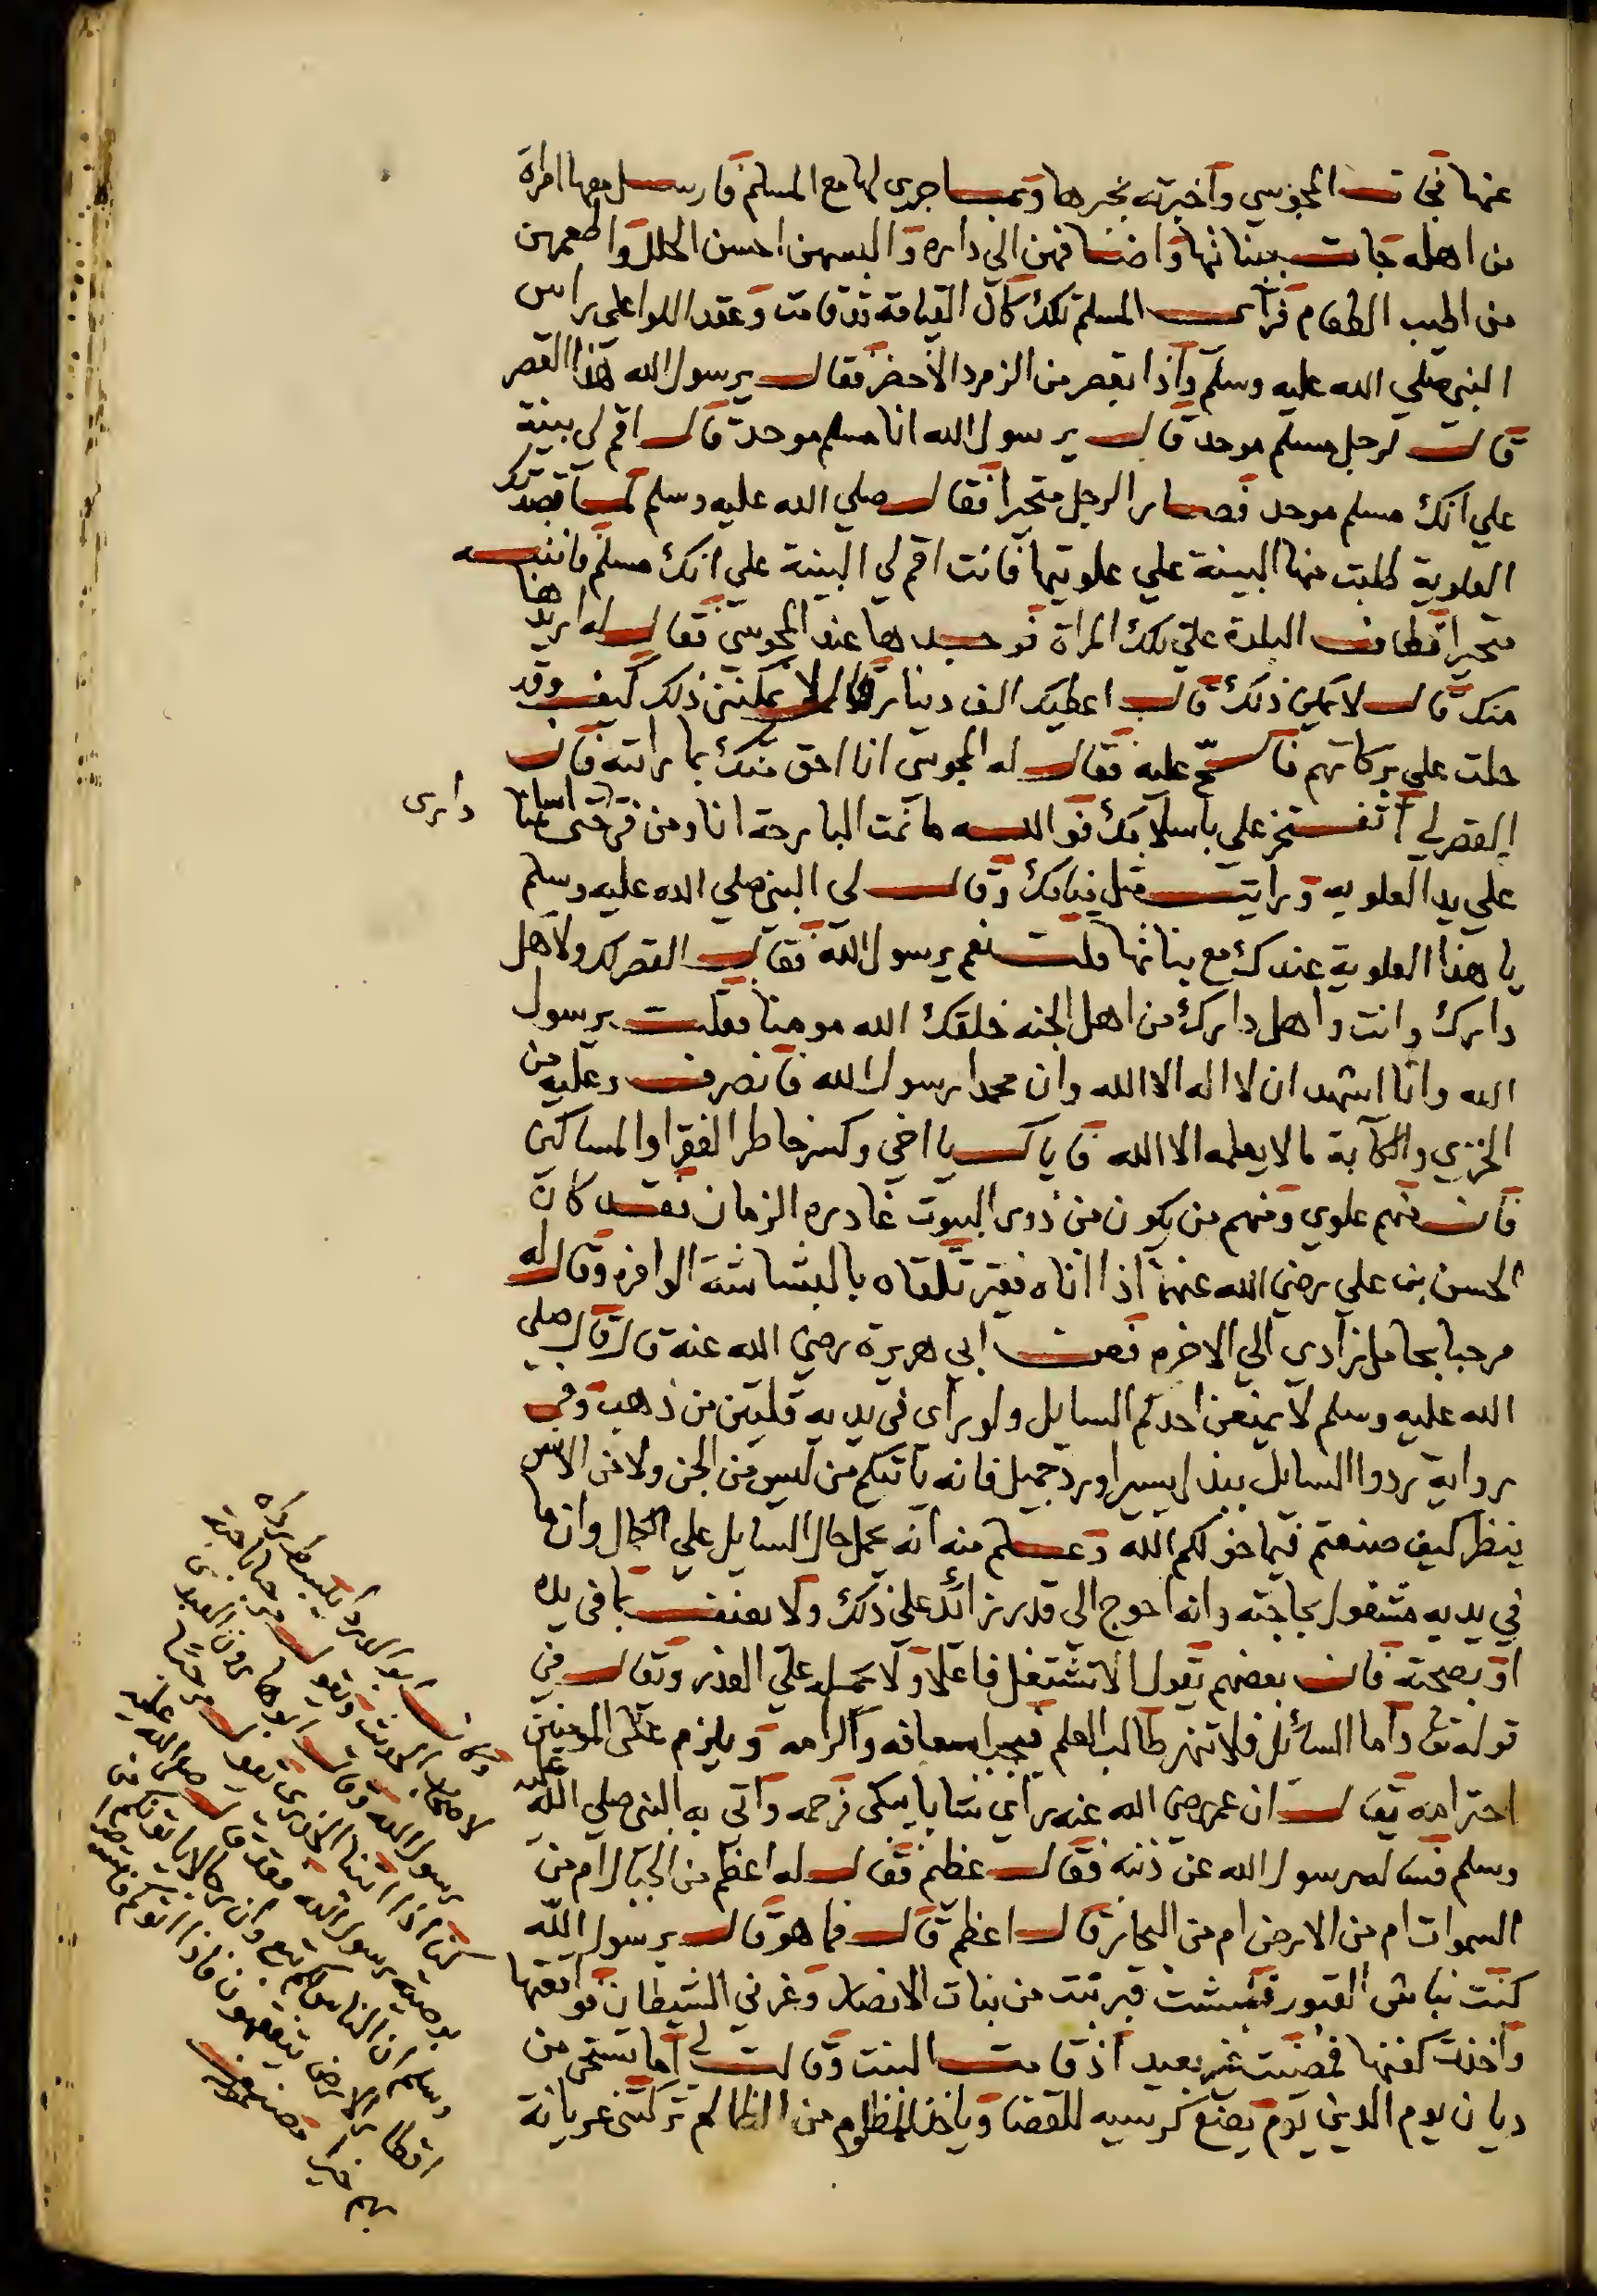 عنها فجات المجوسي واخبرته بخبرها وبما جرى لها مع المسلم فارسل معها امراة
من اهله جات ببناتها واضافهن الى داره والبسهن احسن الحلل واطعمهن
من اطيب الطعام فراى المسلم تلك كان القيامة قد قامت وعقد اللوا على راس
النبي صلي الله عليه وسلم واذا بقصر من الزمرد الاخضر فقال يرسول الله لمن هذا القصر
قال لرجل مسلم موحد قال يرسول الله انا مسلم موحد قال اقم لي بينة
علي انك مسلم موحد فصار الرجل متحيرا فقال صلي الله عليه وسلم لما قصدتك
العلوية طلبت منها البينة علي علويتها فانت اقم لي البينة علي انك مسلم فانتبه
متحيرا فطاف البلدة علي تلك المراة فوجدها عند المجوسي فقال له اريدها
منك قال لا يمكن ذلك قال اعطيك الف دينار قال لا يمكنني ذلك كيف وقد
حلت علي بركاتهم فالح عليه فقال له المجوسي انا احق منك بما رايته فان
القصر لي اتفتخر علي باسلامك فوالله ما نمت البارحة انا ومن في داري حتى اسلمنا
علي يد العلويه ورايت مثل منامك وقال لى النبي صلي الله عليه وسلم
يا هذا العلوية عندك مع بناتها قلت نعم يرسول الله فقال القصر لك ولاهل
دارك وانت واهل دارك من اهل الجنه خلقك الله مومنا فقلت يرسول
الله وانا اشهد ان لا اله الا الله وان محمدا رسول الله فانصرف وعليه من
الخزي والكآبة ما لا يعلمه الا الله فاياك يا اخي وكسر خاطر الفقرا والمساكين
فان منهم علوي ومنهم من يكون من ذوى البيوت غادره الزمان فقد كان
الحسن بن علي رضي الله عنهما اذا اتاه فقير تلقاه بالبشاشة الوافره وقال له
مرحبا بحامل زادي الي الاخرة فعن ابي هريرة رضي الله عنه قال قال صلي
الله عليه وسلم لا يمنعن احدكم السايل ولو راى في يديه قلبين من ذهب وفى
رواية ردوا السايل ببذل يسير او رد جميل فانه ياتيكم من ليس من الجن ولا من الانس
ينظر كيف صنعتم فيما خولكم الله وعلم منه انه يحمل حال السايل علي الكمال وان ما
في يديه مشغول بحاجته وانه احوج الى قدر زائد علي ذلك ولا يعنف بما في يده
او بصحته فان بعضهم يقول الا تشتغل فاعلا ولا يحمله علي العذر وقال في
قوله تعالى واما السائل فلا تنهر طالب العلم فيجب اسعافه واكرامه ويلزم على المومنين
احترامه يقال ان عمر رضي الله عنه راى شابا يبكى فرحمه واتى به النبي صلي الله عليه
وسلم فساله رسول الله عن ذنبه فقال عظيم فقال له اعظم من الجبال ام من
السموات ام من الارض ام من البحار قال اعظم قال فما هو قال يرسول الله
كنت نباش القبور فنبشت قبر بنت من بنات الانصار وغرني الشيطان فواقعتها
واخذت كفنها فمضيت غير بعيد اذ قامت البنت وقالت لي اما تستحي من
ديان يوم الدين يوم يضع كرسيه للقضا وياخذ للمظلوم من الظالم تركتني عريانة
وكان ابو الدردا يبسط رداه
لاصحاب الحديث ويقول مرحبا باحبة
رسول الله وقال ابو هارون العبدى
كنا اذا اتينا الخدرى يقول مرحبا
بوصية رسول الله فقد قال صلى الله عليه
وسلم ان الناس لكم تبع وان رجالا ياتونكم من
اقطار الارض يتفقهون فاذا اتوكم فاستوصوا
بهم خيرا